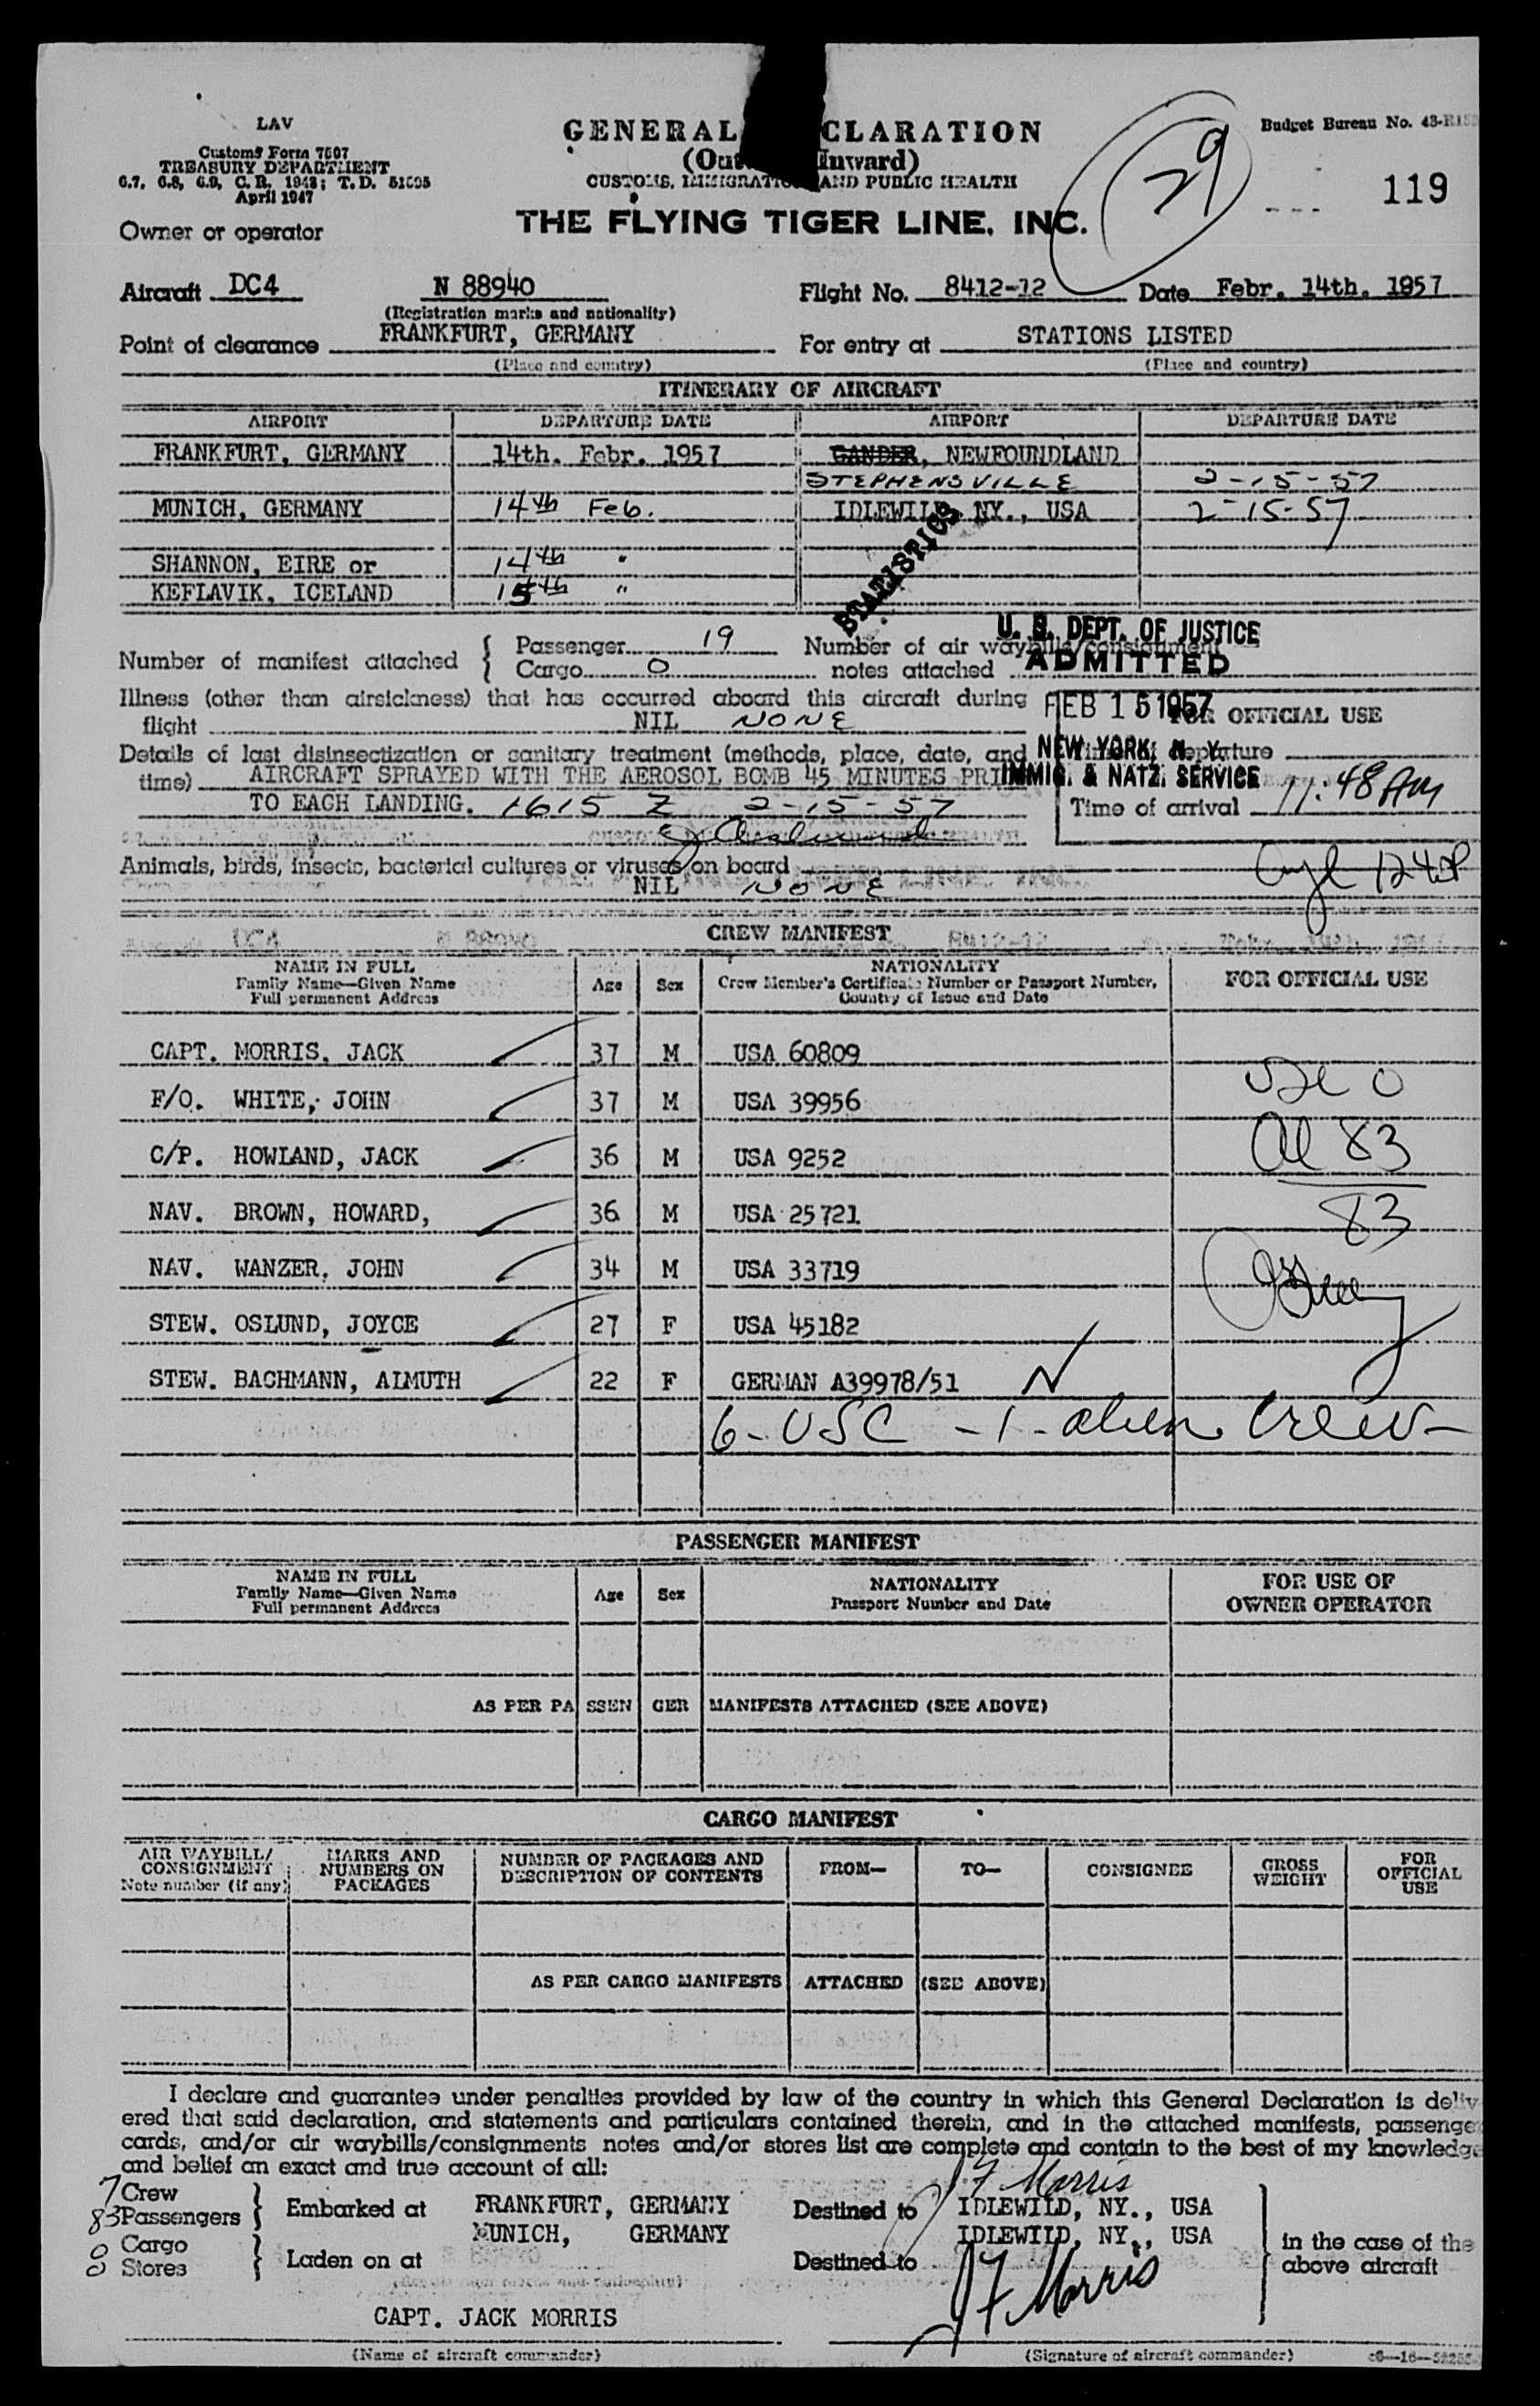 LAV
Customs Form 7507
TREASURY DEPARTMENT
6.7, 6.8, 6.9, C. R. 1948; T. D. 51595
April 1947
GENERAL CLARATION
(Out Inward)
CUSTOMS, IMMIGRATION AND PUBLIC HEALTH
29
Budget Bureau No. 43-
119
Owner or operator
THE FLYING TIGER LINE, INC.
Aircraft DC4 N 88940 Flight No. 8412-12 Date Febr. 14th. 1957
(Registration marks and nationality)
Point of clearance FRANKFURT, GERMANY For entry at STATIONS LISTED
(Place and country) (Place and country)
ITINERARY OF AIRCRAFT
AIRPORT DEPARTURE DATE AIRPORT DEPARTURE DATE
FRANKFURT, GERMANY 14th. Febr. 1957 GANDER, NEWFOUNDLAND
STEPHENSVILLE 2-15-57
MUNICH, GERMANY 14th Feb. IDLEWILD NY., USA 2-15-57
SHANNON, EIRE or 14th "
KEFLAVIK, ICELAND 15th "
STATISTICS
Number of manifest attached { Passenger 19 Number of air waybills/consignment
Cargo 0 notes attached
U. S. DEPT. OF JUSTICE
ADMITTED
FEB 15 1957
NEW YORK, N. Y.
IMMIG. & NATZ. SERVICE
Illness (other than airsickness) that has occurred aboard this aircraft during
flight NIL NONE
FOR OFFICIAL USE
Details of last disinsectization or sanitary treatment (methods, place, date, and
Time of departure
time) AIRCRAFT SPRAYED WITH THE AEROSOL BOMB 45 MINUTES PRI
TO EACH LANDING. 1615 Z 2-15-57
Time of arrival 11:48 AM
Animals, birds, insects, bacterial cultures or viruses on board
NIL NONE
CREW MANIFEST
NAME IN FULL
Family Name—Given Name
Full permanent Address
Age Sex
NATIONALITY
Crew Member's Certificate Number or Passport Number,
Country of Issue and Date
FOR OFFICIAL USE
CAPT. MORRIS, JACK 37 M USA 60809
F/O. WHITE, JOHN 37 M USA 39956
C/P. HOWLAND, JACK 36 M USA 9252
NAV. BROWN, HOWARD, 36 M USA 25721
NAV. WANZER, JOHN 34 M USA 33719
STEW. OSLUND, JOYCE 27 F USA 45182
STEW. BACHMANN, ALMUTH 22 F GERMAN A39978/51
USC 0
Al 83
83
6- USC - 1- alien crew-
PASSENGER MANIFEST
NAME IN FULL
Family Name—Given Name
Full permanent Address
Age Sex
NATIONALITY
Passport Number and Date
FOR USE OF
OWNER OPERATOR
AS PER PASSENGER MANIFESTS ATTACHED (SEE ABOVE)
CARGO MANIFEST
AIR WAYBILL/
CONSIGNMENT
Note number (if any)
MARKS AND
NUMBERS ON
PACKAGES
NUMBER OF PACKAGES AND
DESCRIPTION OF CONTENTS
FROM— TO— CONSIGNEE
GROSS
WEIGHT
FOR
OFFICIAL
USE
AS PER CARGO MANIFESTS ATTACHED (SEE ABOVE)
I declare and guarantee under penalties provided by law of the country in which this General Declaration is deliv
ered that said declaration, and statements and particulars contained therein, and in the attached manifests, passenger
cards, and/or air waybills/consignments notes and/or stores list are complete and contain to the best of my knowledge
and belief an exact and true account of all:
J F Morris
7 Crew
83 Passengers } Embarked at FRANKFURT, GERMANY Destined to IDLEWILD, NY., USA
MUNICH, GERMANY IDLEWILD, NY., USA
0 Cargo
0 Stores } Laden on at Destined to
in the case of the
above aircraft
J F Morris
CAPT. JACK MORRIS
(Name of aircraft commander) (Signature of aircraft commander)